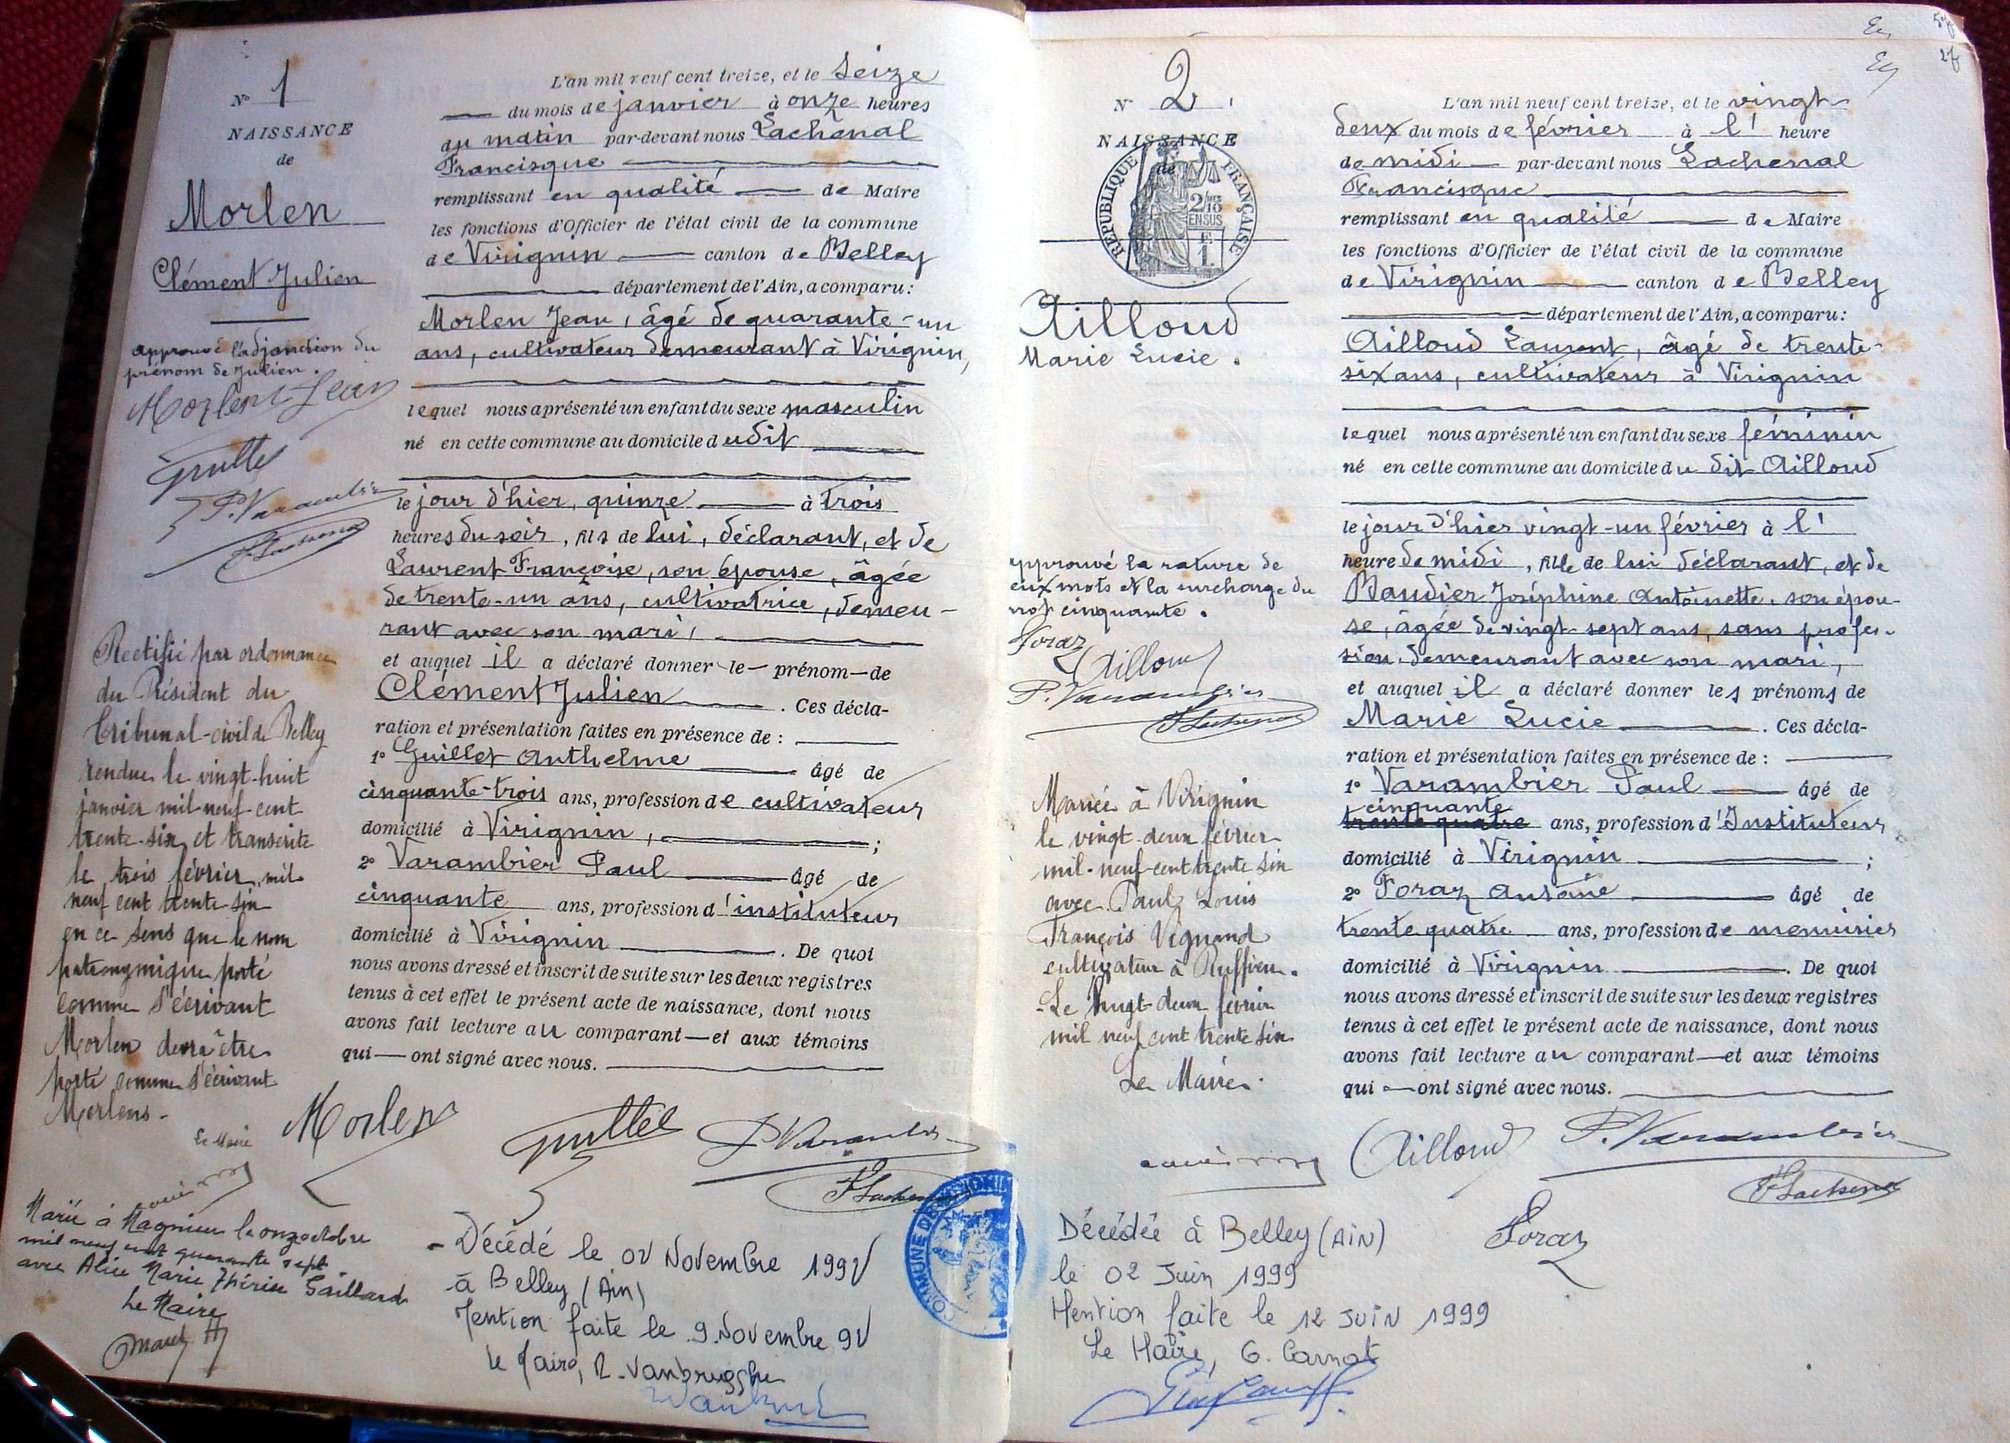 N° 1
NAISSANCE
de
Morlen
Clément Julien
approuvé l'adjonction du
prénom de Julien.
Morlen Jean
P. Varambier
Rectifié par ordonnance
du Président du
Tribunal civil de Belley
rendue le vingt-huit
janvier mil neuf cent
trente-six et transcrite
le trois février mil
neuf cent trente six
en ce sens que le nom
patronymique porté
comme s'écrivant
Morlen devra être
porté comme s'écrivant
Le Maire
Marié à Magnieu le onze octobre
mil neuf cent quarante sept
avec Alice Marie Thérèse Gaillard
Le Maire
L'an mil neuf cent treize, et le seize
du mois de janvier à onze heures
du matin par-devant nous Lachenal
Francisque
remplissant en qualité de Maire
les fonctions d'Officier de l'état civil de la commune
de Virignin canton de Belley
département de l'Ain, a comparu:
Morlen Jean, âgé de quarante-un
ans, cultivateur demeurant à Virignin,
lequel nous a présenté un enfant du sexe masculin
né en cette commune au domicile dudit
le jour d'hier, quinze à trois
heures du soir, fils de lui, déclarant, et de
Laurent Françoise, son épouse, âgée
de trente-un ans, cultivatrice, demeu-
rant avec son mari,
et auquel il a déclaré donner le prénom de
Clément Julien. Ces décla-
ration et présentation faites en présence de :
1° Guillet Anthelme âgé de
cinquante-trois ans, profession de cultivateur
domicilié à Virignin, ;
2° Varambier Paul âgé de
cinquante ans, profession d'instituteur
domicilié à Virignin. De quoi
nous avons dressé et inscrit de suite sur les deux registres
tenus à cet effet le présent acte de naissance, dont nous
avons fait lecture au comparant et aux témoins
qui ont signé avec nous.
Morlen
P. Varambier
F. Lachenal
- Décédé le 02 Novembre 1992
à Belley (Ain)
Mention faite le 9 Novembre 92
le Maire, R. Vanbrugghe
COMMUNE DE VIRIGNIN
N° 2
NAISSANCE
de
RÉPUBLIQUE FRANÇAISE
2/10
EN SUS
1 F
Ailloud
Marie Lucie.
approuvé la rature de
deux mots et la surcharge du
mot cinquante.
Foraz
Ailloud
P. Varambier
F. Lachenal
Mariée à Virignin
le vingt-deux février
mil-neuf-cent trente six
avec Paul Louis
François Vignand
cultivateur à Ruffieu.
- Le vingt-deux février
mil neuf cent trente six
Le Maire.
L'an mil neuf cent treize, et le vingt-
deux du mois de février à l' heure
de midi par-devant nous Lachenal
Francisque
remplissant en qualité de Maire
les fonctions d'Officier de l'état civil de la commune
de Virignin canton de Belley
département de l'Ain, a comparu:
Ailloud Laurent, âgé de trente-
six ans, cultivateur à Virignin
lequel nous a présenté un enfant du sexe féminin
né en cette commune au domicile du dit Ailloud
le jour d'hier vingt-un février à l'
heure de midi, fille de lui déclarant, et de
Baudier Joséphine Antoinette, son épou-
se, âgée de vingt-sept ans, sans profes-
sion, demeurant avec son mari,
et auquel il a déclaré donner les prénoms de
Marie Lucie. Ces décla-
ration et présentation faites en présence de :
1° Varambier Paul âgé de
cinquante
trente quatre ans, profession d'Instituteur
domicilié à Virignin ;
2° Foraz Antoine âgé de
trente quatre ans, profession de menuisier
domicilié à Virignin. De quoi
nous avons dressé et inscrit de suite sur les deux registres
tenus à cet effet le présent acte de naissance, dont nous
avons fait lecture au comparant et aux témoins
qui ont signé avec nous.
Ailloud
P. Varambier
F. Lachenal
Foraz
Décédée à Belley (Ain)
le 02 Juin 1999
Mention faite le 12 JUIN 1999
Le Maire, G. Carnot